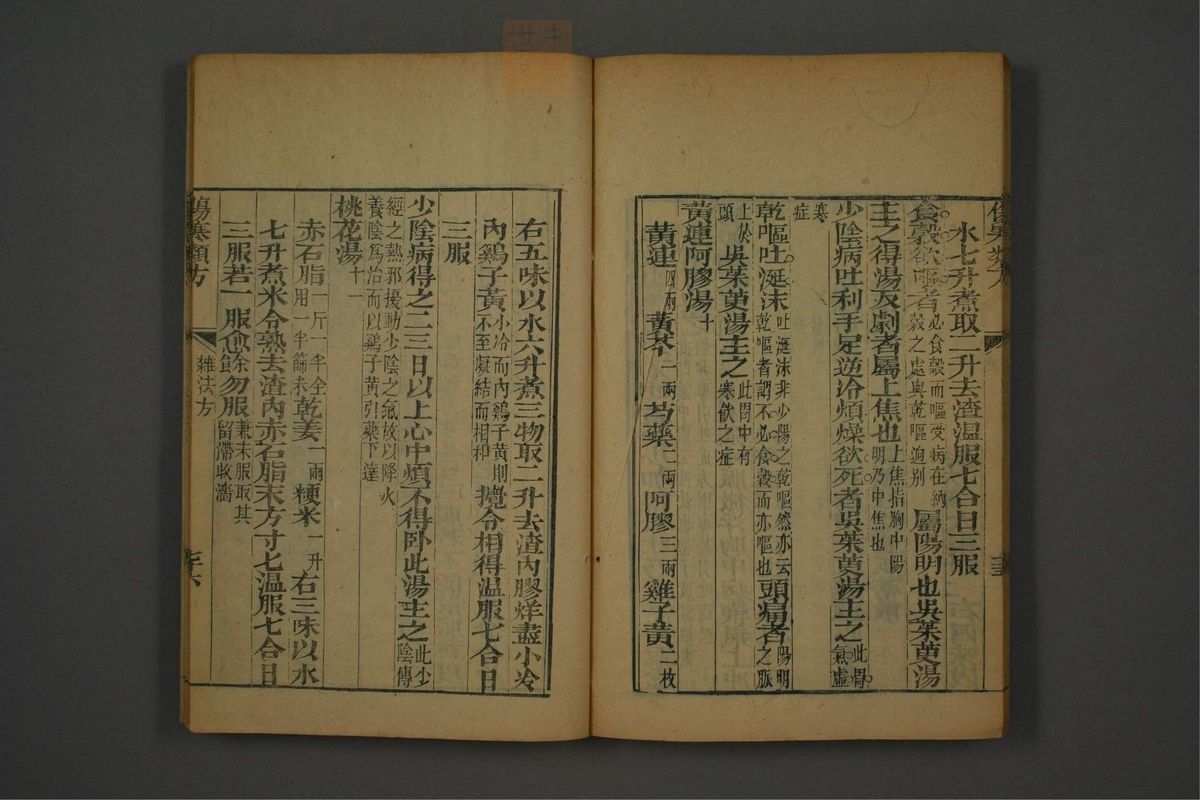 水七升煮取二升去渣温服七合日三服
食穀欲嘔者必食穀而嘔受病在納穀之處與乾嘔迥别屬陽明也吳茱萸湯
主之得湯反劇者屬上焦也上焦指胸中陽明乃中焦也
少陰病吐利手足逆冷煩燥欲死者吳茱萸湯主之此胃氣虛
寒症
乾嘔吐涎沫吐涎沫非少陽之乾嘔然亦云乾嘔者謂不必食穀而亦嘔也頭痛者陽明之脈
上於頭吳茱萸湯主之此胃中有寒飲之症
黃連阿膠湯十
黃連四兩黃芩一兩芍藥二兩阿膠三兩雞子黃二枚
右五味以水六升煮三物取二升去渣內膠烊盡小冷
內鷄子黃小冷而內鷄子黃則不至凝結而相和攪令相得温服七合日
三服
少陰病得之二三日以上心中煩不得卧此湯主之此少陰傳
經之熱邪擾動少陰之氣故以降火養陰爲治而以鷄子黃引藥下達
桃花湯十一
赤石脂一斤一半全用一半篩末乾姜一兩粳米一升右三味以水
七升煮米令熟去渣內赤石脂末方寸匕温服七合日
三服若一服愈餘勿服兼末服取其留滯收濇
傷寒類方
雜法方
三十六